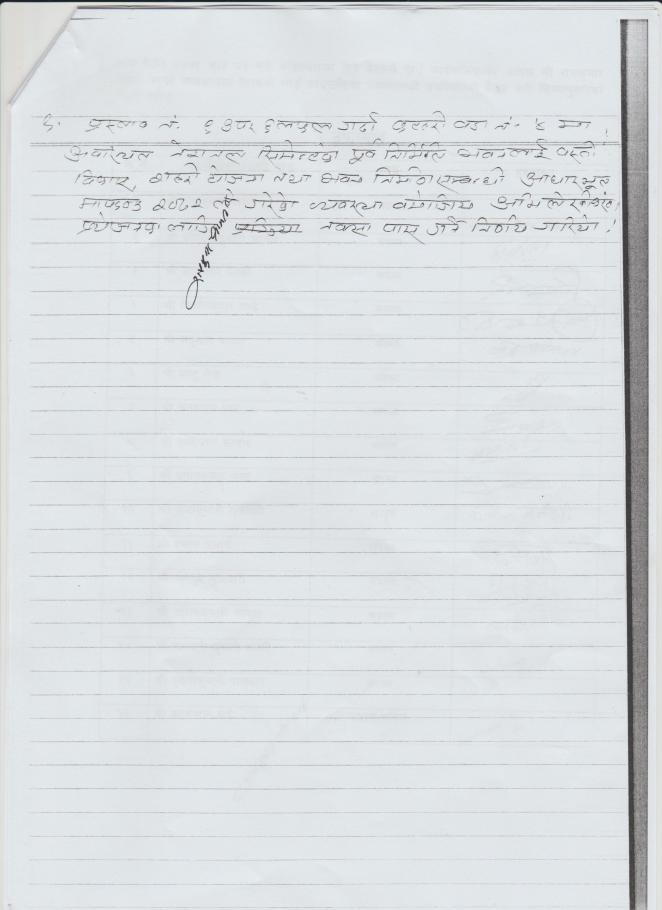 ६. प्रस्ताव नं. ६ उपर छलफल गर्दा वडा नं. ४ मा
अवस्थित नेशनल सिमेन्टको पूर्व निर्मित भवनलाई वस्ती
विकास, शहरी योजना तथा भवन निर्माण सम्बन्धी आधारभूत
मापदण्ड २०७२ ले गरेको व्यवस्था बमोजिम अभिलेखीकरण
प्रयोजनका लागि प्रक्रिया नक्सा पास गर्ने निर्णय गरियो ।